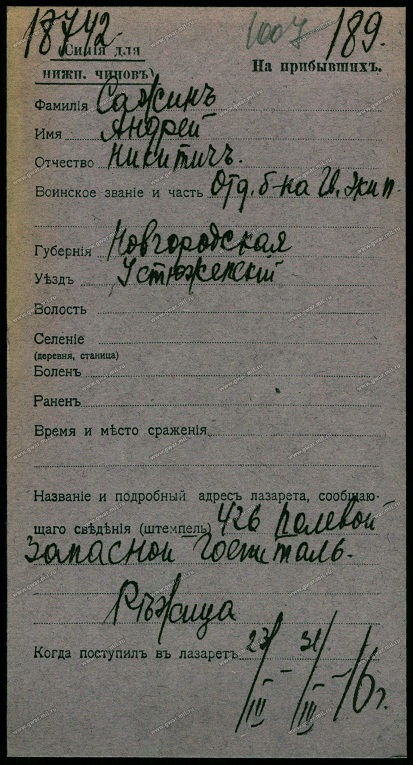 18742.
1007
189.
(Синія для
нижн. чиновъ)
На прибывшихъ.
Фамилія Сажинъ
Имя Андрей
Отчество Никитичъ.
Воинское званіе и часть Отд. б-на Гв. Экип
Губернія Новгородская
Уѣздъ Устюженскій
Волость
Селеніе
(деревня, станица)
Боленъ
Раненъ
Время и мѣсто сраженія
Названіе и подробный адресъ лазарета, сообщаю-
щаго свѣдѣнія (штемпель) 426 полевой
Запасной Госпиталь.
Рѣжица
Когда поступилъ въ лазаретъ 27/III – 31/III – 16 г.